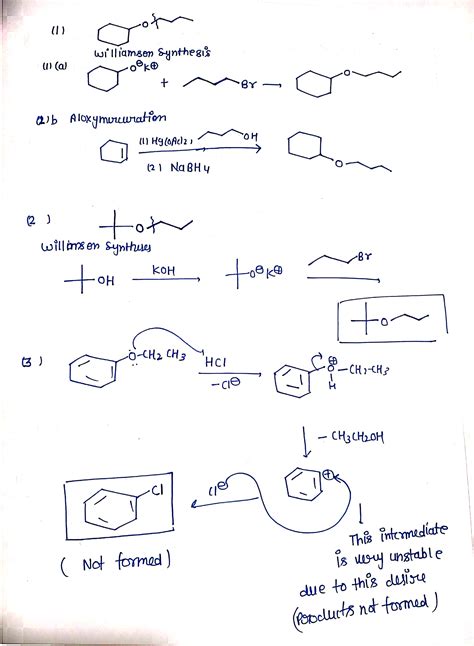 (1)
O
Williamson Synthesis
(1) (a)
O⊖K⊕
+
Br
O
(2)b Aloxymurcuration
(1) Hg(OAc)2,
OH
(2) NaBH4
O
(2)
O
Williamsen Syntheses
OH
KOH
O⊖ K⊕
Br
O
(3)
O-CH2 CH3
HCl
-Cl⊖
⊕
O-CH2-CH3
H
- CH3CH2OH
Cl
Cl⊖
⊕
( Not formed)
This intermediate
is very unstable
due to this desire
(Products not formed)